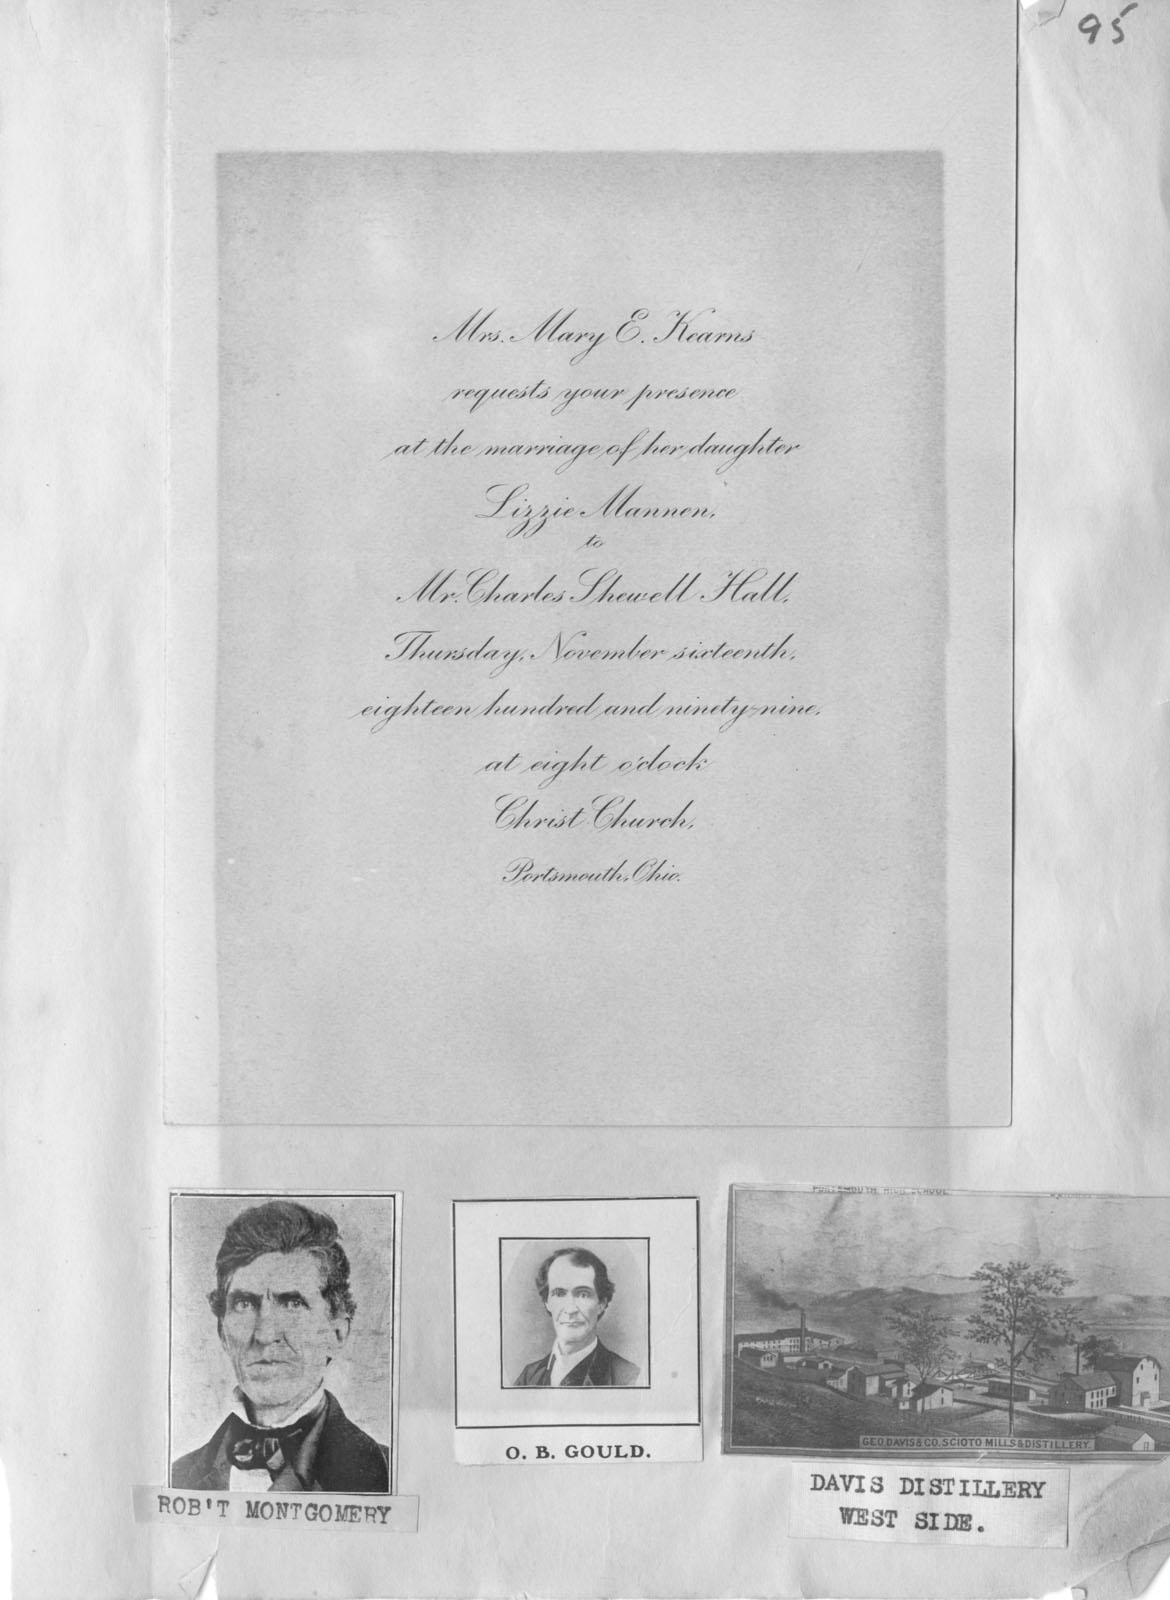 95
Mrs. Mary E. Kearns
requests your presence
at the marriage of her daughter
Lizzie Mannen,
to
Mr. Charles Shewell Hall,
Thursday, November sixteenth,
eighteen hundred and ninety-nine,
at eight o'clock
Christ Church,
Portsmouth, Ohio.
ROB'T MONTGOMERY
O. B. GOULD.
PORTSMOUTH HIGH SCHOOL
GEO. DAVIS & CO. SCIOTO MILLS & DISTILLERY.
DAVIS DISTILLERY
WEST SIDE.